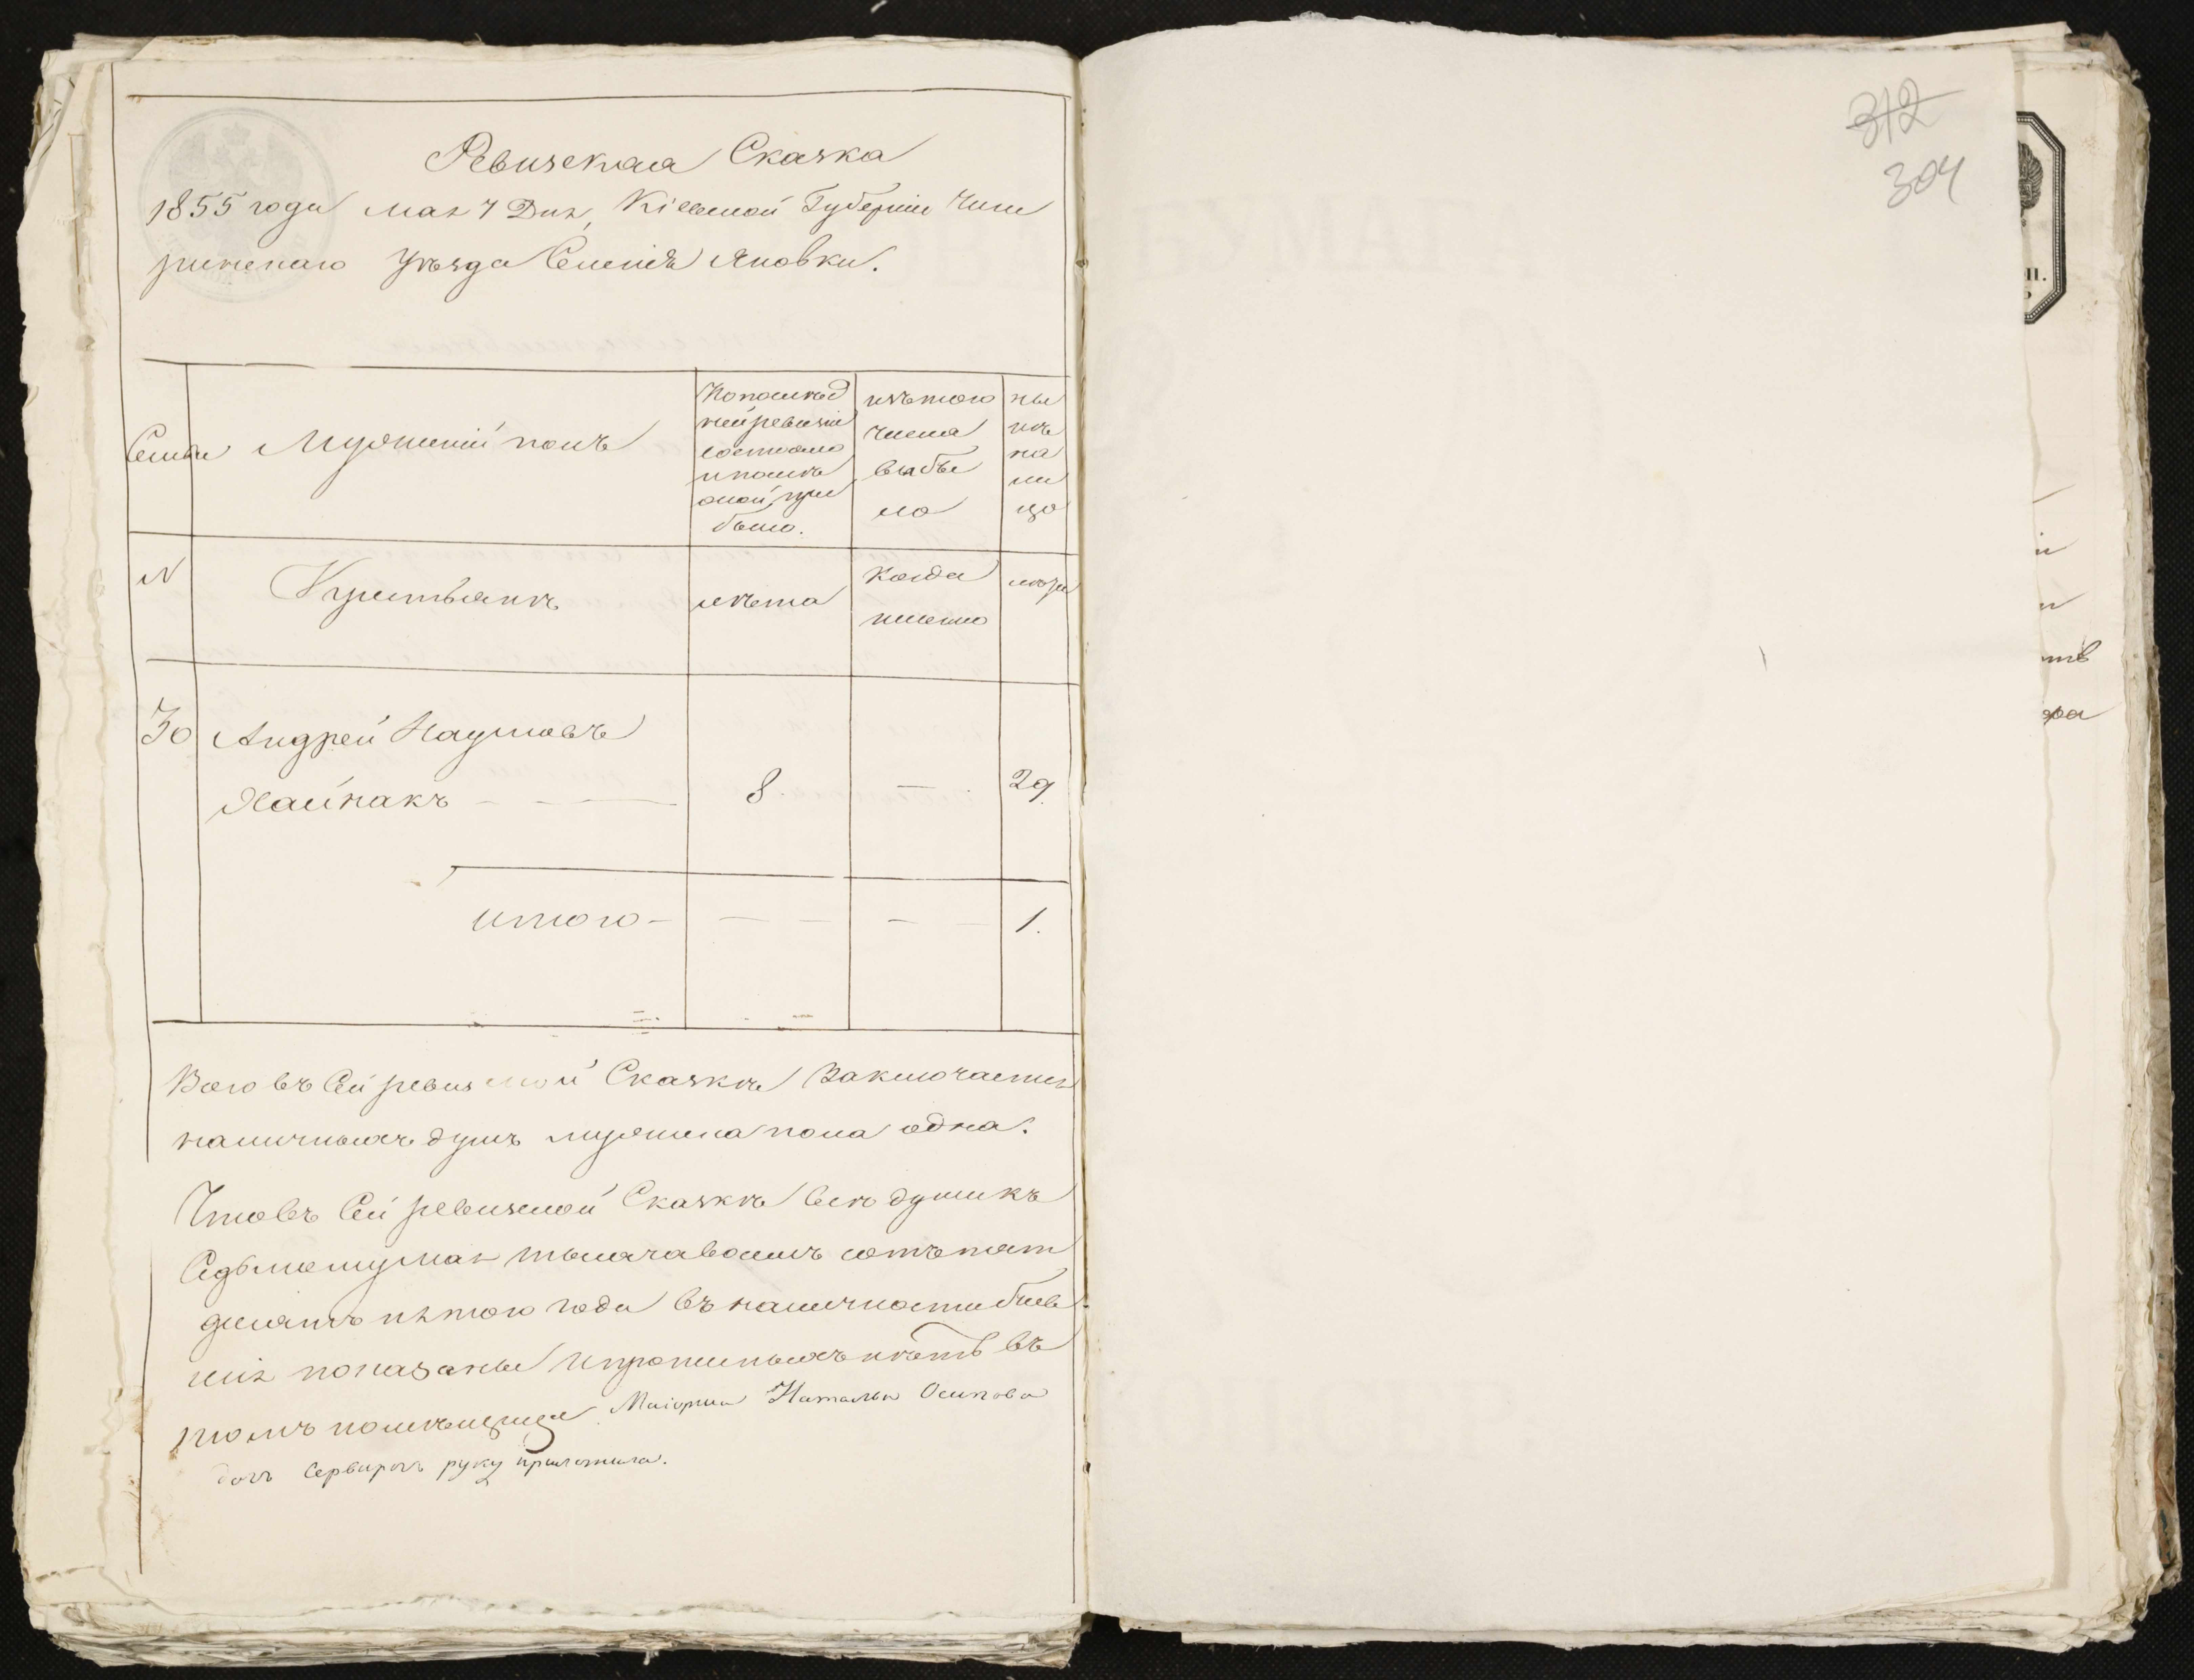 312
304
Ревизская Сказка
1855 года мая 7 Дня, Кіевской Губерніи Чиги
ринскаго Уѣзда Селенія Яновки.
Семьи
Мужескій полъ
По послѣд
ней ревизіи
состояло
и послѣ
оной при
было.
изъ того
числа
выбы
ло
ны
нѣ
на
ли
цо
N
Крестьянъ
лѣта
когда
именно
лѣта
30
Андрей Наумовъ
Хайнакъ
8
29
итого
1.
Всего въ Сей ревизской Сказкѣ Заключается
наличныхъ душъ мужеска пола одна.
Что въ Сей ревизской Сказкѣ все души къ
Седьмому мая тысяча восемь сотъ пять
десять пятого года въ наличности бывв
шія показаны и прописныхъ нѣтъ въ
томъ помѣщица Маіорша Наталья Осипова
дочь руку приложила.